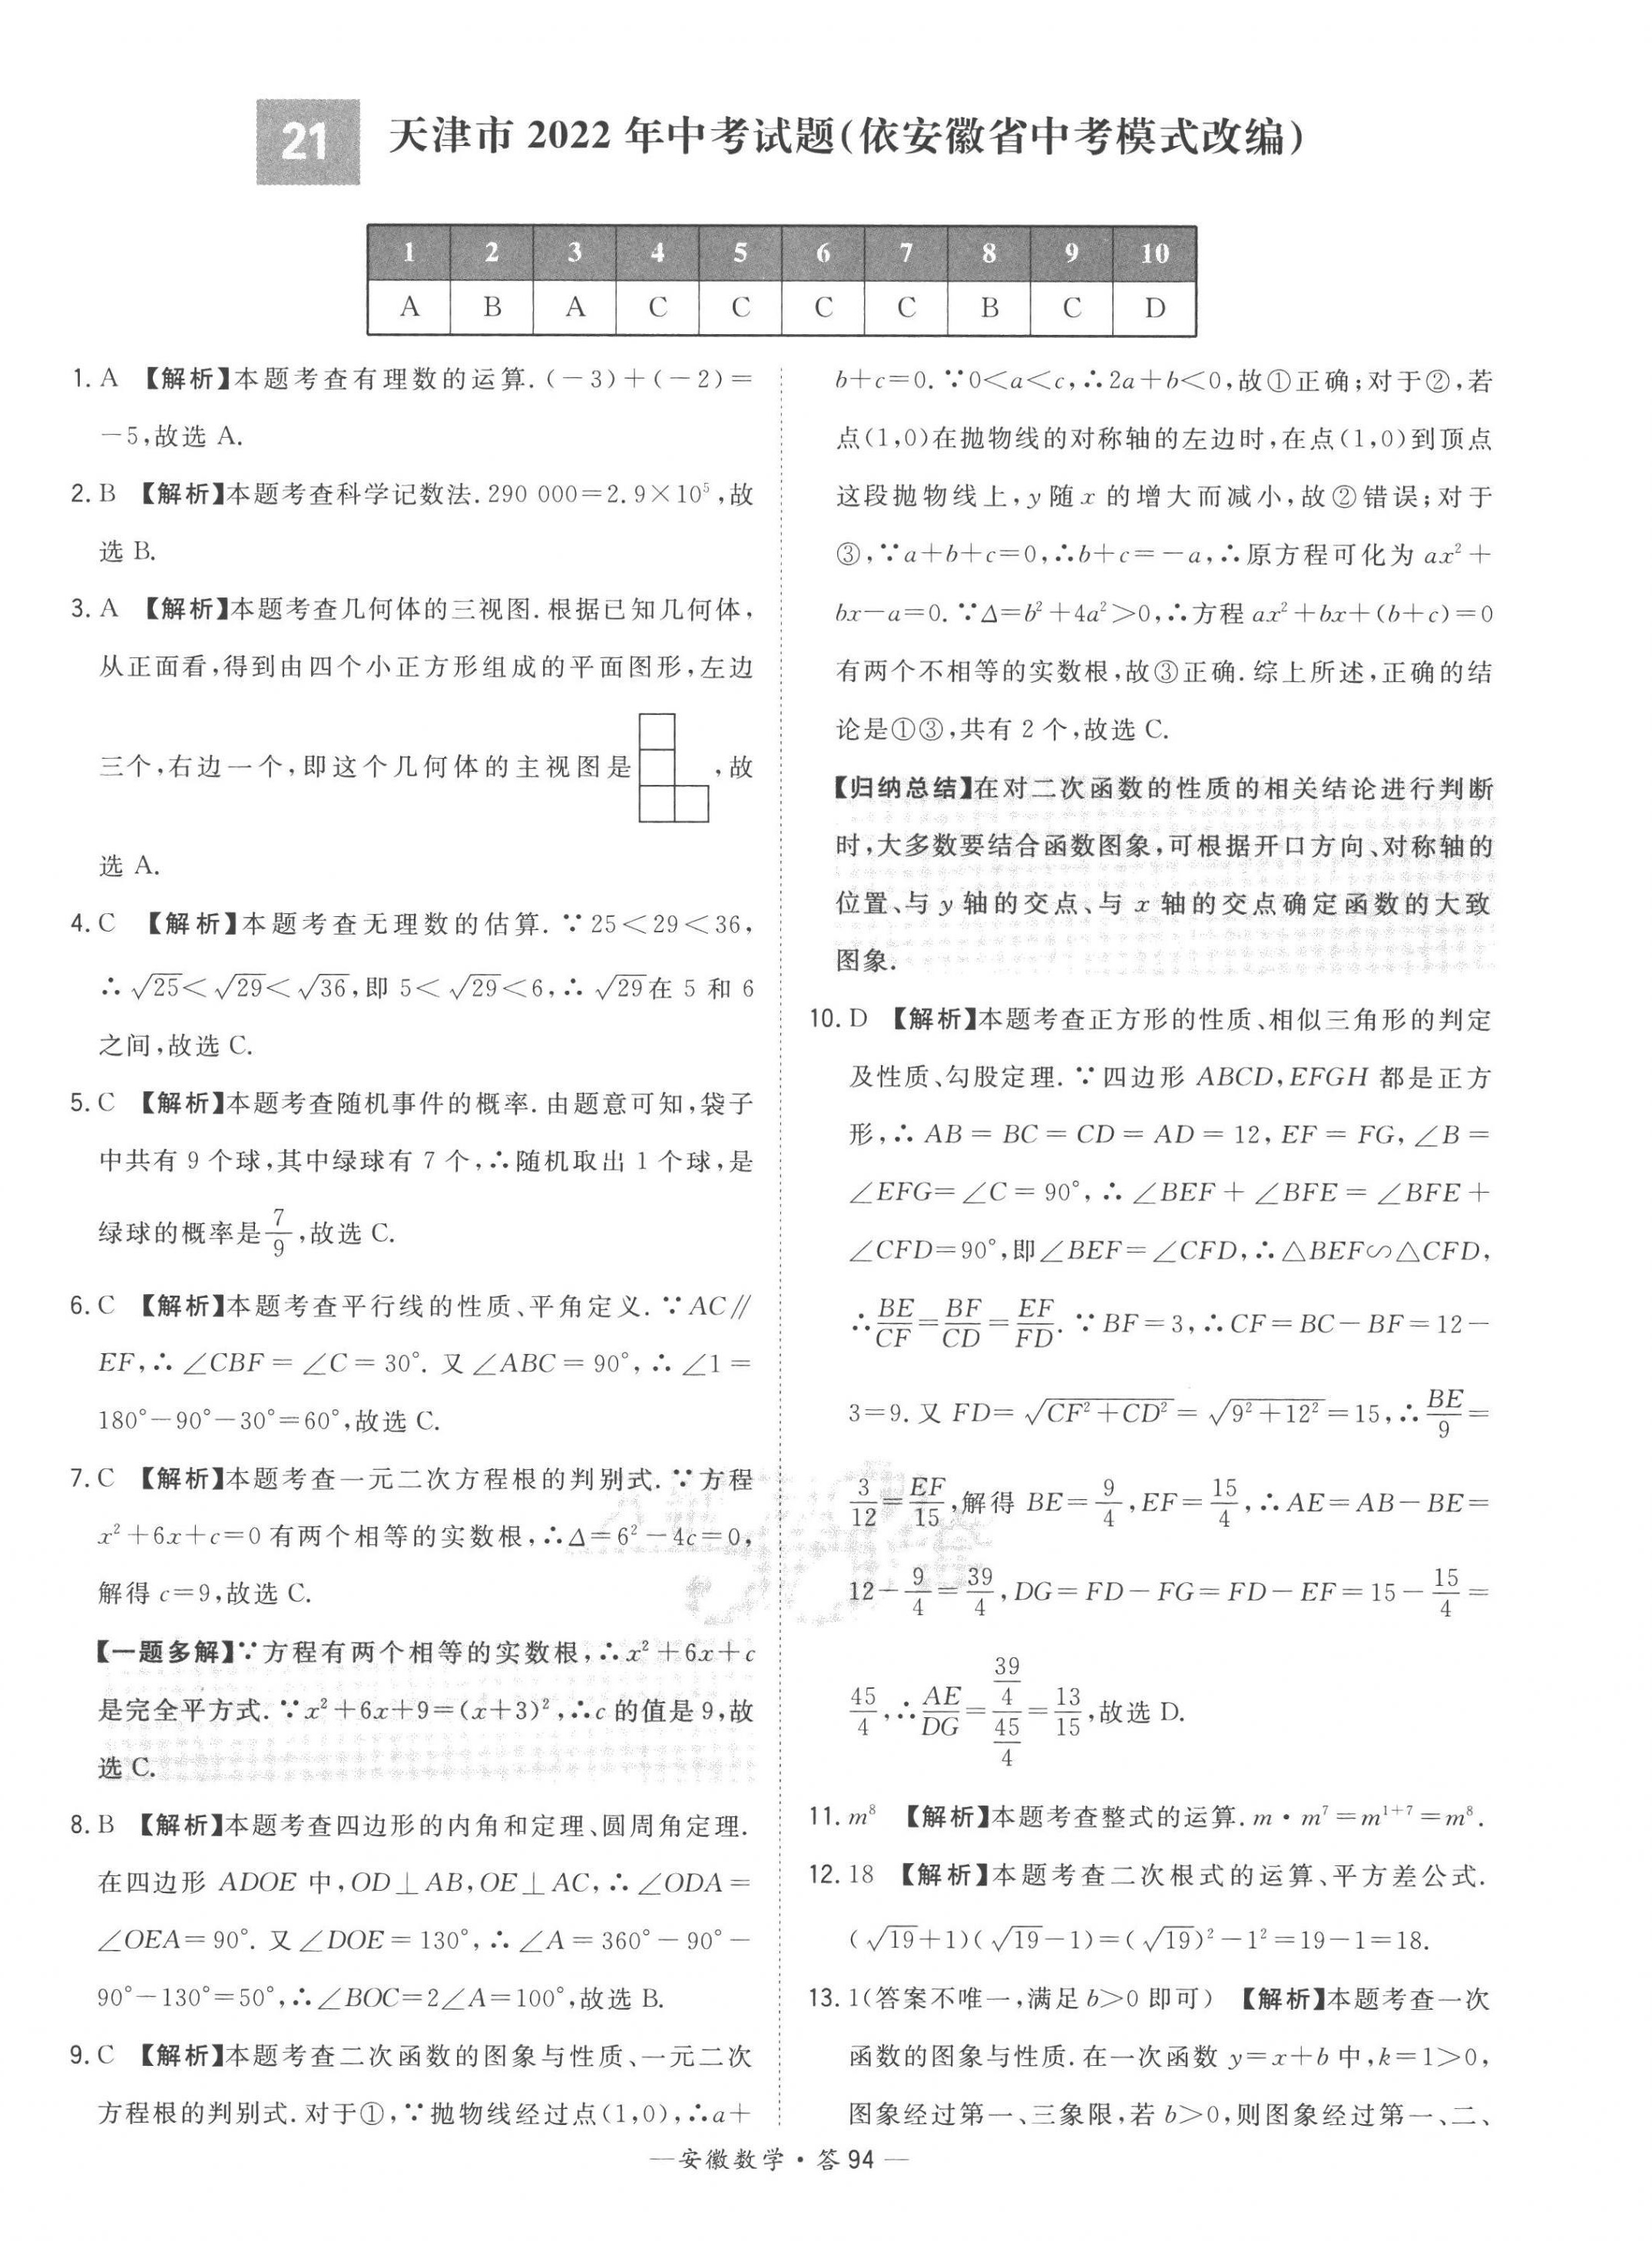 21 天津市 2022 年中考试题(依安徽省中考模式改编)
1 2 3 4 5 6 7 8 9 10
A B A C C C C B C D
1. A 【解析】本题考查有理数的运算.(-3)+(-2)=
-5,故选 A.
2. B 【解析】本题考查科学记数法.290 000=2.9×10⁵,故
选 B.
3. A 【解析】本题考查几何体的三视图.根据已知几何体,
从正面看,得到由四个小正方形组成的平面图形,左边
三个,右边一个,即这个几何体的主视图是 ,故
选 A.
4. C 【解析】本题考查无理数的估算.∵25<29<36,
∴√25<√29<√36,即 5<√29<6,∴√29在 5 和 6
之间,故选 C.
5. C 【解析】本题考查随机事件的概率.由题意可知,袋子
中共有 9 个球,其中绿球有 7 个,∴随机取出 1 个球,是
绿球的概率是7/9,故选 C.
6. C 【解析】本题考查平行线的性质、平角定义.∵AC∥
EF,∴∠CBF=∠C=30°.又∠ABC=90°,∴∠1=
180°-90°-30°=60°,故选 C.
7. C 【解析】本题考查一元二次方程根的判别式.∵方程
x²+6x+c=0 有两个相等的实数根,∴Δ=6²-4c=0,
解得 c=9,故选 C.
【一题多解】∵方程有两个相等的实数根,∴x²+6x+c
是完全平方式.∵x²+6x+9=(x+3)²,∴c 的值是 9,故
选 C.
8. B 【解析】本题考查四边形的内角和定理、圆周角定理.
在四边形 ADOE 中,OD⊥AB,OE⊥AC,∴∠ODA=
∠OEA=90°.又∠DOE=130°,∴∠A=360°-90°-
90°-130°=50°,∴∠BOC=2∠A=100°,故选 B.
9. C 【解析】本题考查二次函数的图象与性质、一元二次
方程根的判别式.对于①,∵抛物线经过点(1,0),∴a+
b+c=0.∵0<a<c,∴2a+b<0,故①正确;对于②,若
点(1,0)在抛物线的对称轴的左边时,在点(1,0)到顶点
这段抛物线上,y 随 x 的增大而减小,故②错误;对于
③,∵a+b+c=0,∴b+c=-a,∴原方程可化为 ax²+
bx-a=0.∵Δ=b²+4a²>0,∴方程 ax²+bx+(b+c)=0
有两个不相等的实数根,故③正确.综上所述,正确的结
论是①③,共有 2 个,故选 C.
【归纳总结】在对二次函数的性质的相关结论进行判断
时,大多数要结合函数图象,可根据开口方向、对称轴的
位置、与 y 轴的交点、与 x 轴的交点确定函数的大致
图象.
10. D 【解析】本题考查正方形的性质、相似三角形的判定
及性质、勾股定理.∵四边形 ABCD,EFGH 都是正方
形,∴AB=BC=CD=AD=12,EF=FG,∠B=
∠EFG=∠C=90°,∴∠BEF+∠BFE=∠BFE+
∠CFD=90°,即∠BEF=∠CFD,∴△BEF∽△CFD,
∴BE/CF=BF/CD=EF/FD.∵BF=3,∴CF=BC-BF=12-
3=9.又 FD=√(CF²+CD²)=√(9²+12²)=15,∴BE/9=
3/12=EF/15,解得 BE=9/4,EF=15/4,∴AE=AB-BE=
12-9/4=39/4,DG=FD-FG=FD-EF=15-15/4=
45/4,∴AE/DG=(39/4)/(45/4)=13/15,故选 D.
11. m⁸ 【解析】本题考查整式的运算.m·m⁷=m¹⁺⁷=m⁸.
12. 18 【解析】本题考查二次根式的运算、平方差公式.
(√19+1)(√19-1)=(√19)²-1²=19-1=18.
13. 1(答案不唯一,满足 b>0 即可) 【解析】本题考查一次
函数的图象与性质.在一次函数 y=x+b 中,k=1>0,
图象经过第一、三象限,若 b>0,则图象经过第一、二、
—安徽数学·答 94—